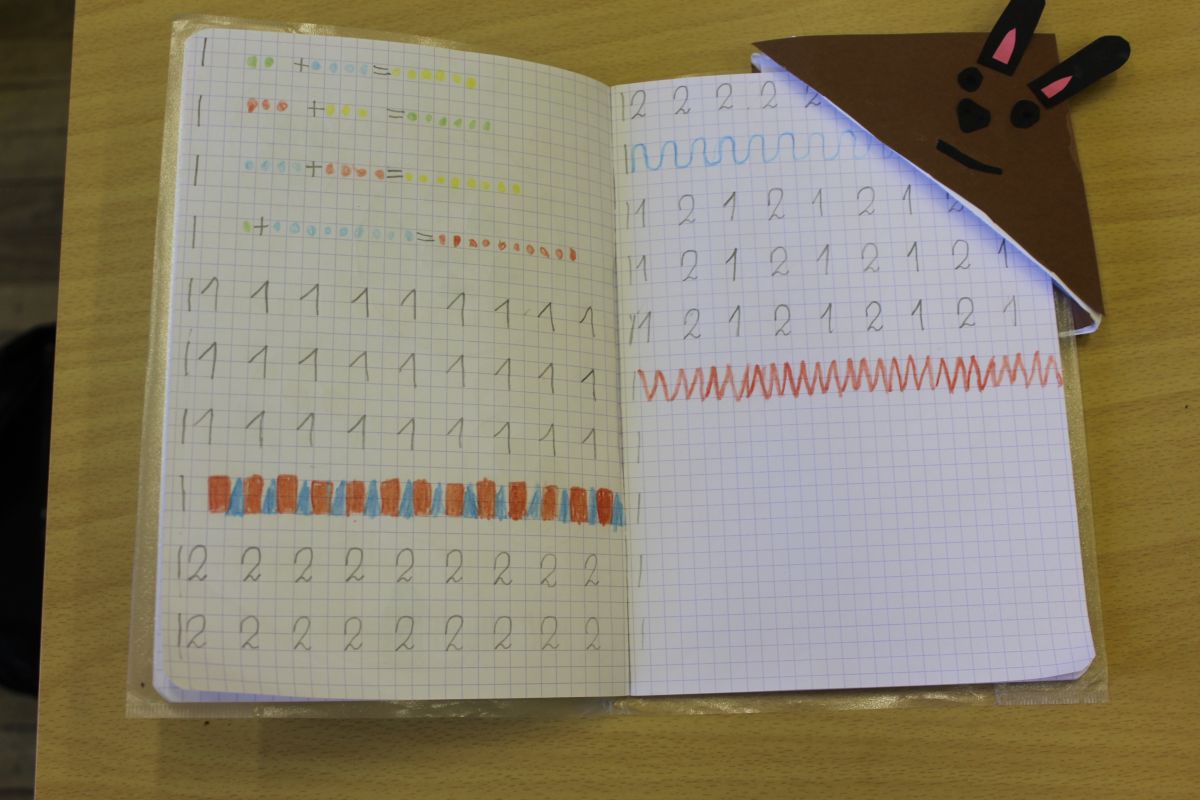 + =
+ =
+ =
+ =
1 1 1 1 1 1 1 1 1
1 1 1 1 1 1 1 1 1
1 1 1 1 1 1 1 1 1
2 2 2 2 2 2 2 2 2
2 2 2 2 2 2 2 2 2
2 2 2 2 2
1 2 1 2 1 2 1 2
1 2 1 2 1 2 1 2 1
1 2 1 2 1 2 1 2 1